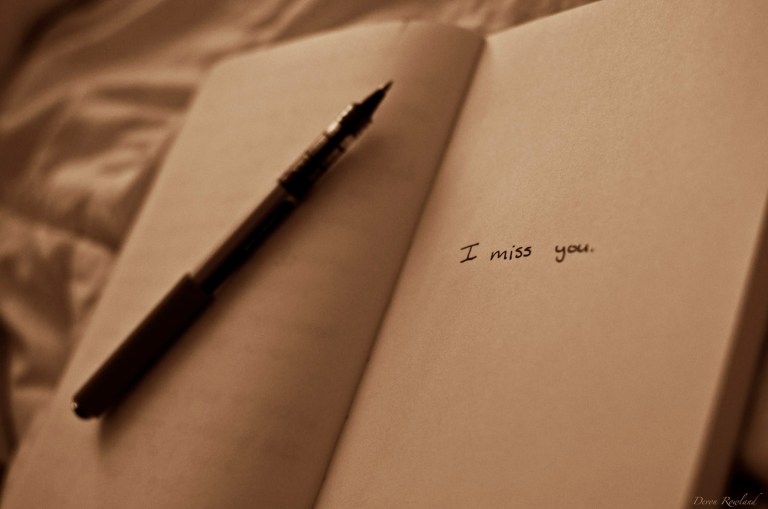 I miss you.
Devon Rowland